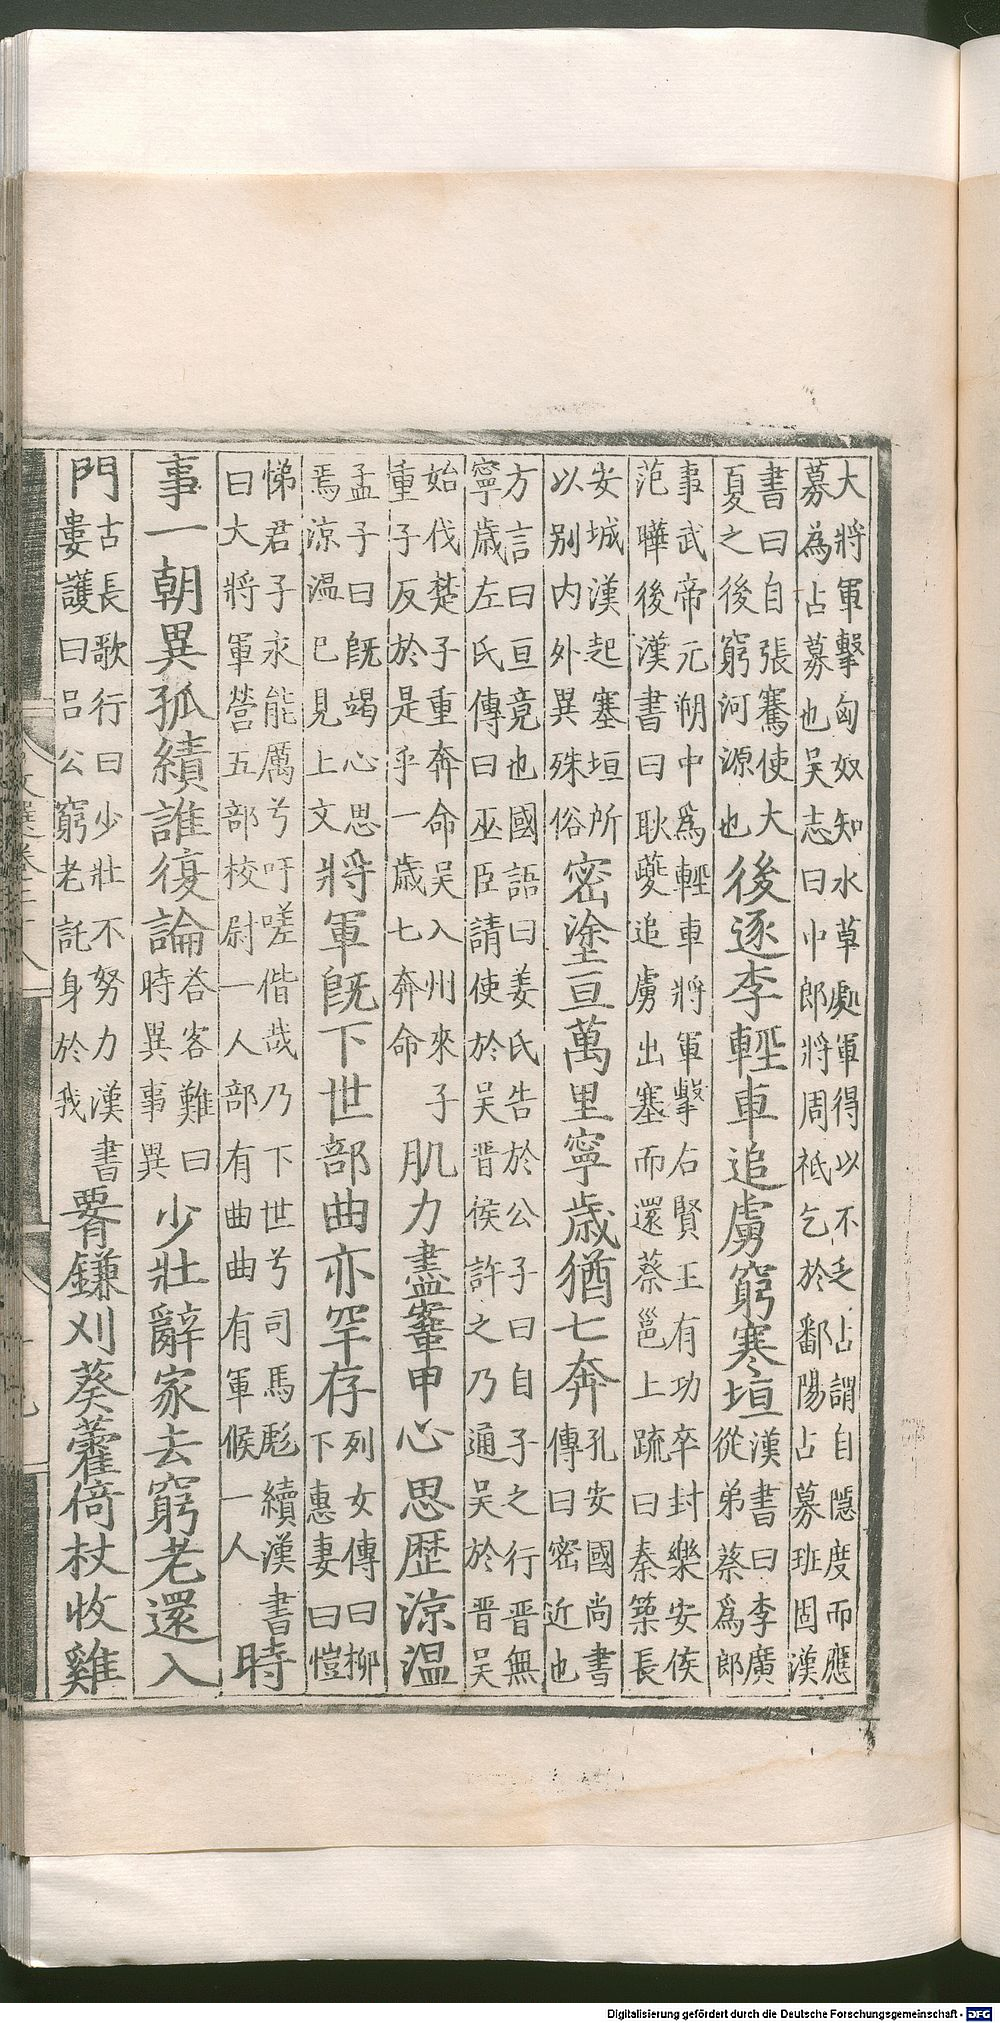 大將軍擊匈奴知水草處軍得以不乏占謂自隱度而應
募為占募也吳志曰中郎將周祗乞於鄱陽占募班固漢
書曰自張騫使大
夏之後窮河源也
後逐李輕車追虜窮寒垣
漢書曰李廣
從弟蔡爲郎
事武帝元朔中爲輕車將軍擊右賢王有功卒封樂安侯
范曄後漢書曰耿夔追虜出塞而還蔡邕上疏曰秦築長
安城漢起塞垣所
以别内外異殊俗
密塗亘萬里寧歲猶七奔
孔安國尚書
傳曰密近也
方言曰亘竟也國語曰姜氏告於公子曰自子之行晉無
寧歲左氏傳曰巫臣請使於吳晉侯許之乃通吳於晉吳
始伐楚子重奔命吳入州來子
重子反於是乎一歲七奔命
肌力盡鞌甲心思歷涼温
孟子曰旣竭心思
焉涼温已見上文
將軍旣下世部曲亦罕存
列女傳曰柳
下惠妻曰愷
悌君子永能厲兮吁嗟偕哉乃下世兮司馬彪續漢書
曰大將軍營五部校尉一人部有曲曲有軍候一人
時
事一朝異孤績誰復論
荅客難曰
時異事異
少壯辭家去窮老還入
門
古長歌行曰少壯不努力漢書
婁護曰呂公窮老託身於我
腰鎌刈葵藿倚杖收雞
Digitalisierung gefördert durch die Deutsche Forschungsgemeinschaft - DFG